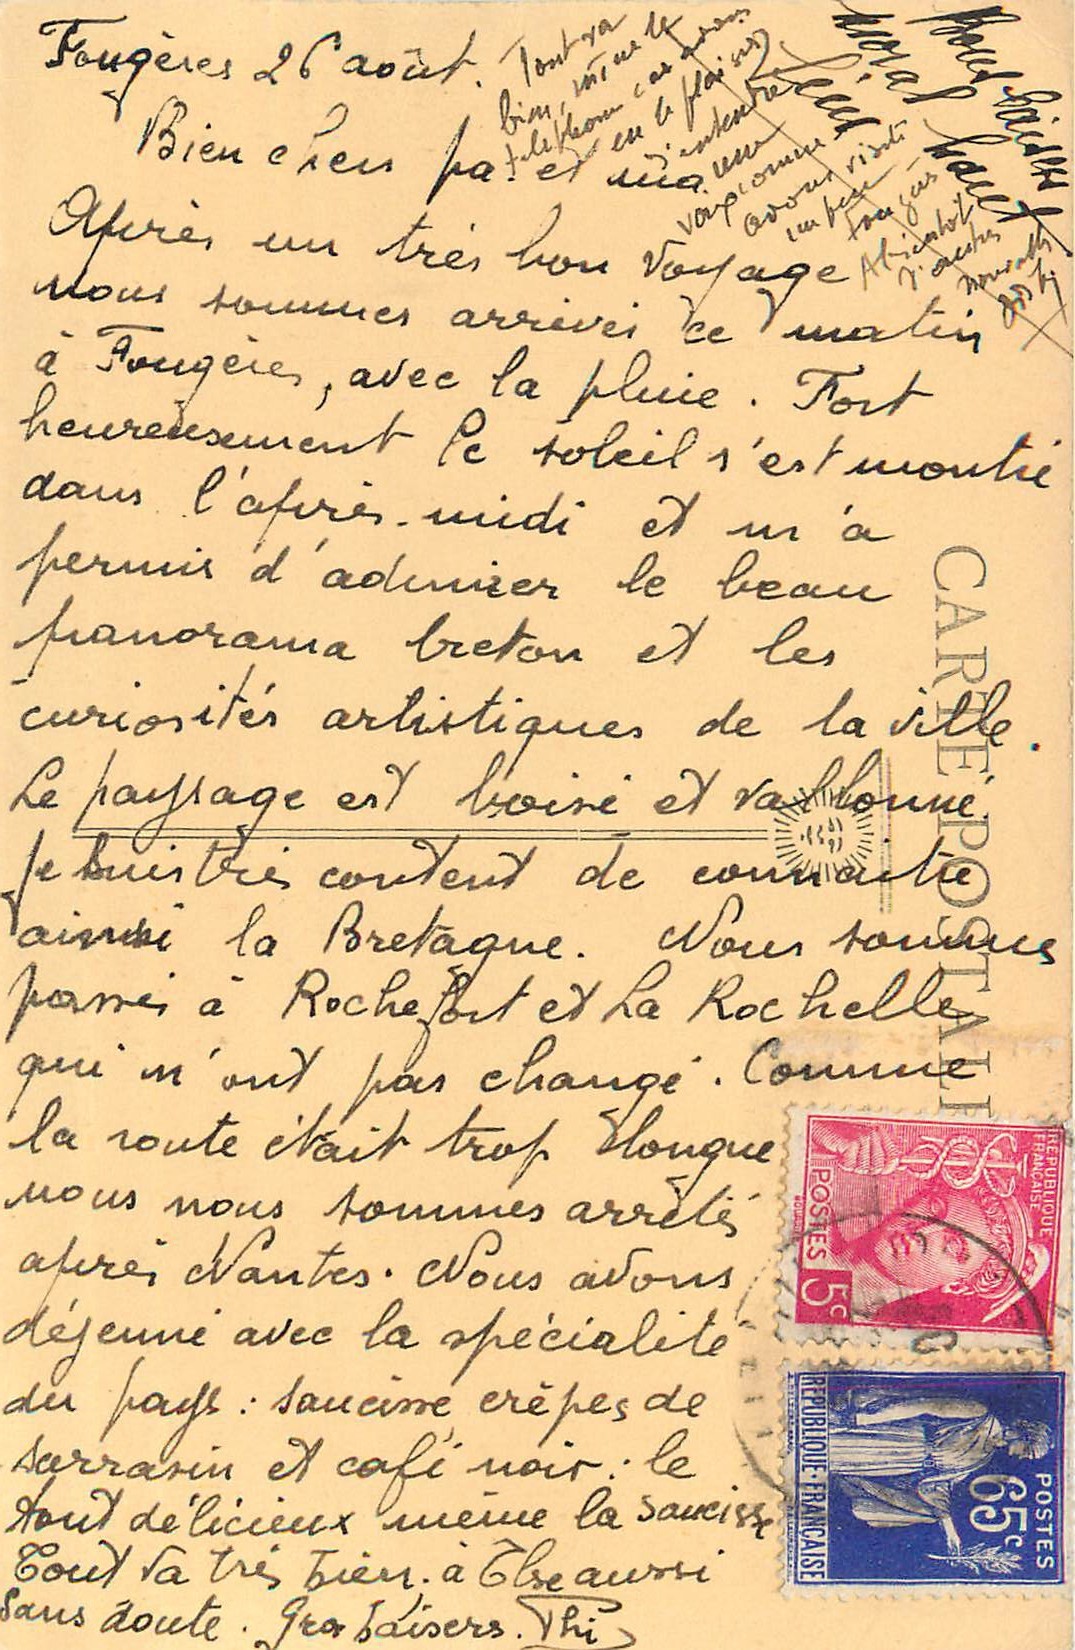 Fougères 26 août.
Bien chers pa. et ma
Après un très bon voyage
nous sommes arrivés ce matin
à Fougères, avec la pluie. Fort
heureusement le soleil s'est montré
dans l'après-midi et m'a
permis d'admirer le beau
panorama breton et les
curiosités artistiques de la ville.
Le paysage est boisé et vallonné.
Je suis très content de connaitre
ainsi la Bretagne. Nous sommes
passés à Rochefort et La Rochelle
qui n'ont pas changé. Comme
la route était trop longue
nous nous sommes arrêtés
après Nantes. Nous avons
déjeuné avec la spécialité
du pays : saucisse crêpes de
sarrasin et café noir : le
tout délicieux même la saucisse
Tout va très bien. à Else aussi
sans doute. Gros baisers. Phi
Tout va
bien, même le
téléphone car avons
eu le plaisir
d'entendre
une
voix comme
avons visité
un peu
Fougères
A bientôt
d'autres
Bons baisers
moral haut
CARTE POSTALE
RÉPUBLIQUE
FRANÇAISE
POSTES 5c
POSTES
65c
RÉPUBLIQUE·FRANÇAISE